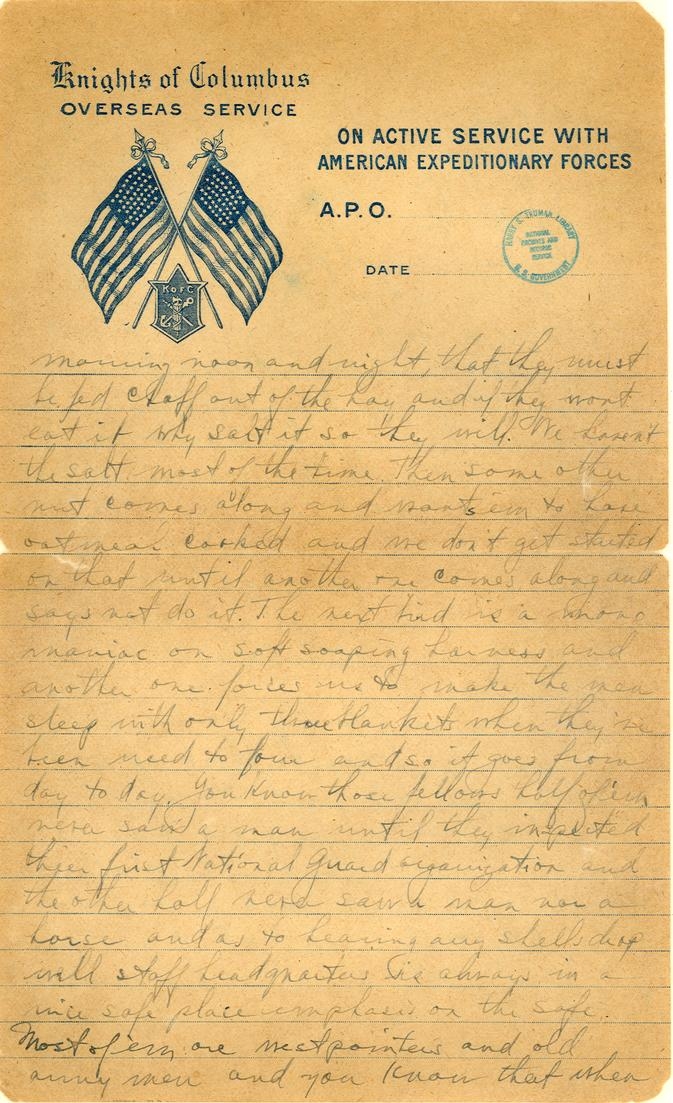 Knights of Columbus
OVERSEAS SERVICE
ON ACTIVE SERVICE WITH
AMERICAN EXPEDITIONARY FORCES
A.P.O.
DATE
HARRY S. TRUMAN LIBRARY
NATIONAL
ARCHIVES AND
RECORDS
SERVICE
U. S. GOVERNMENT
K of C
morning noon and night, that they must
be fed chaff out of the hay and if they wont
eat it why salt it so they will. We haven't
the salt most of the time. Then some other
nut comes along and wants em to have
oatmeal cooked and we don't get started
on that until another one comes along and
says not do it. The next bird is a mono
maniac on soft soaping harness and
another one forces us to make the men
sleep with only three blankets when they've
been used to four and so it goes from
day to day. You know those fellows half of em
never saw a man until they inspected
their first National Guard organization and
the other half never saw a man nor a
horse and as to hearing any shells drop
well staff headquarters is always in a
nice safe place emphasis on the safe.
Most of em are westpointers and old
army men and you know that when